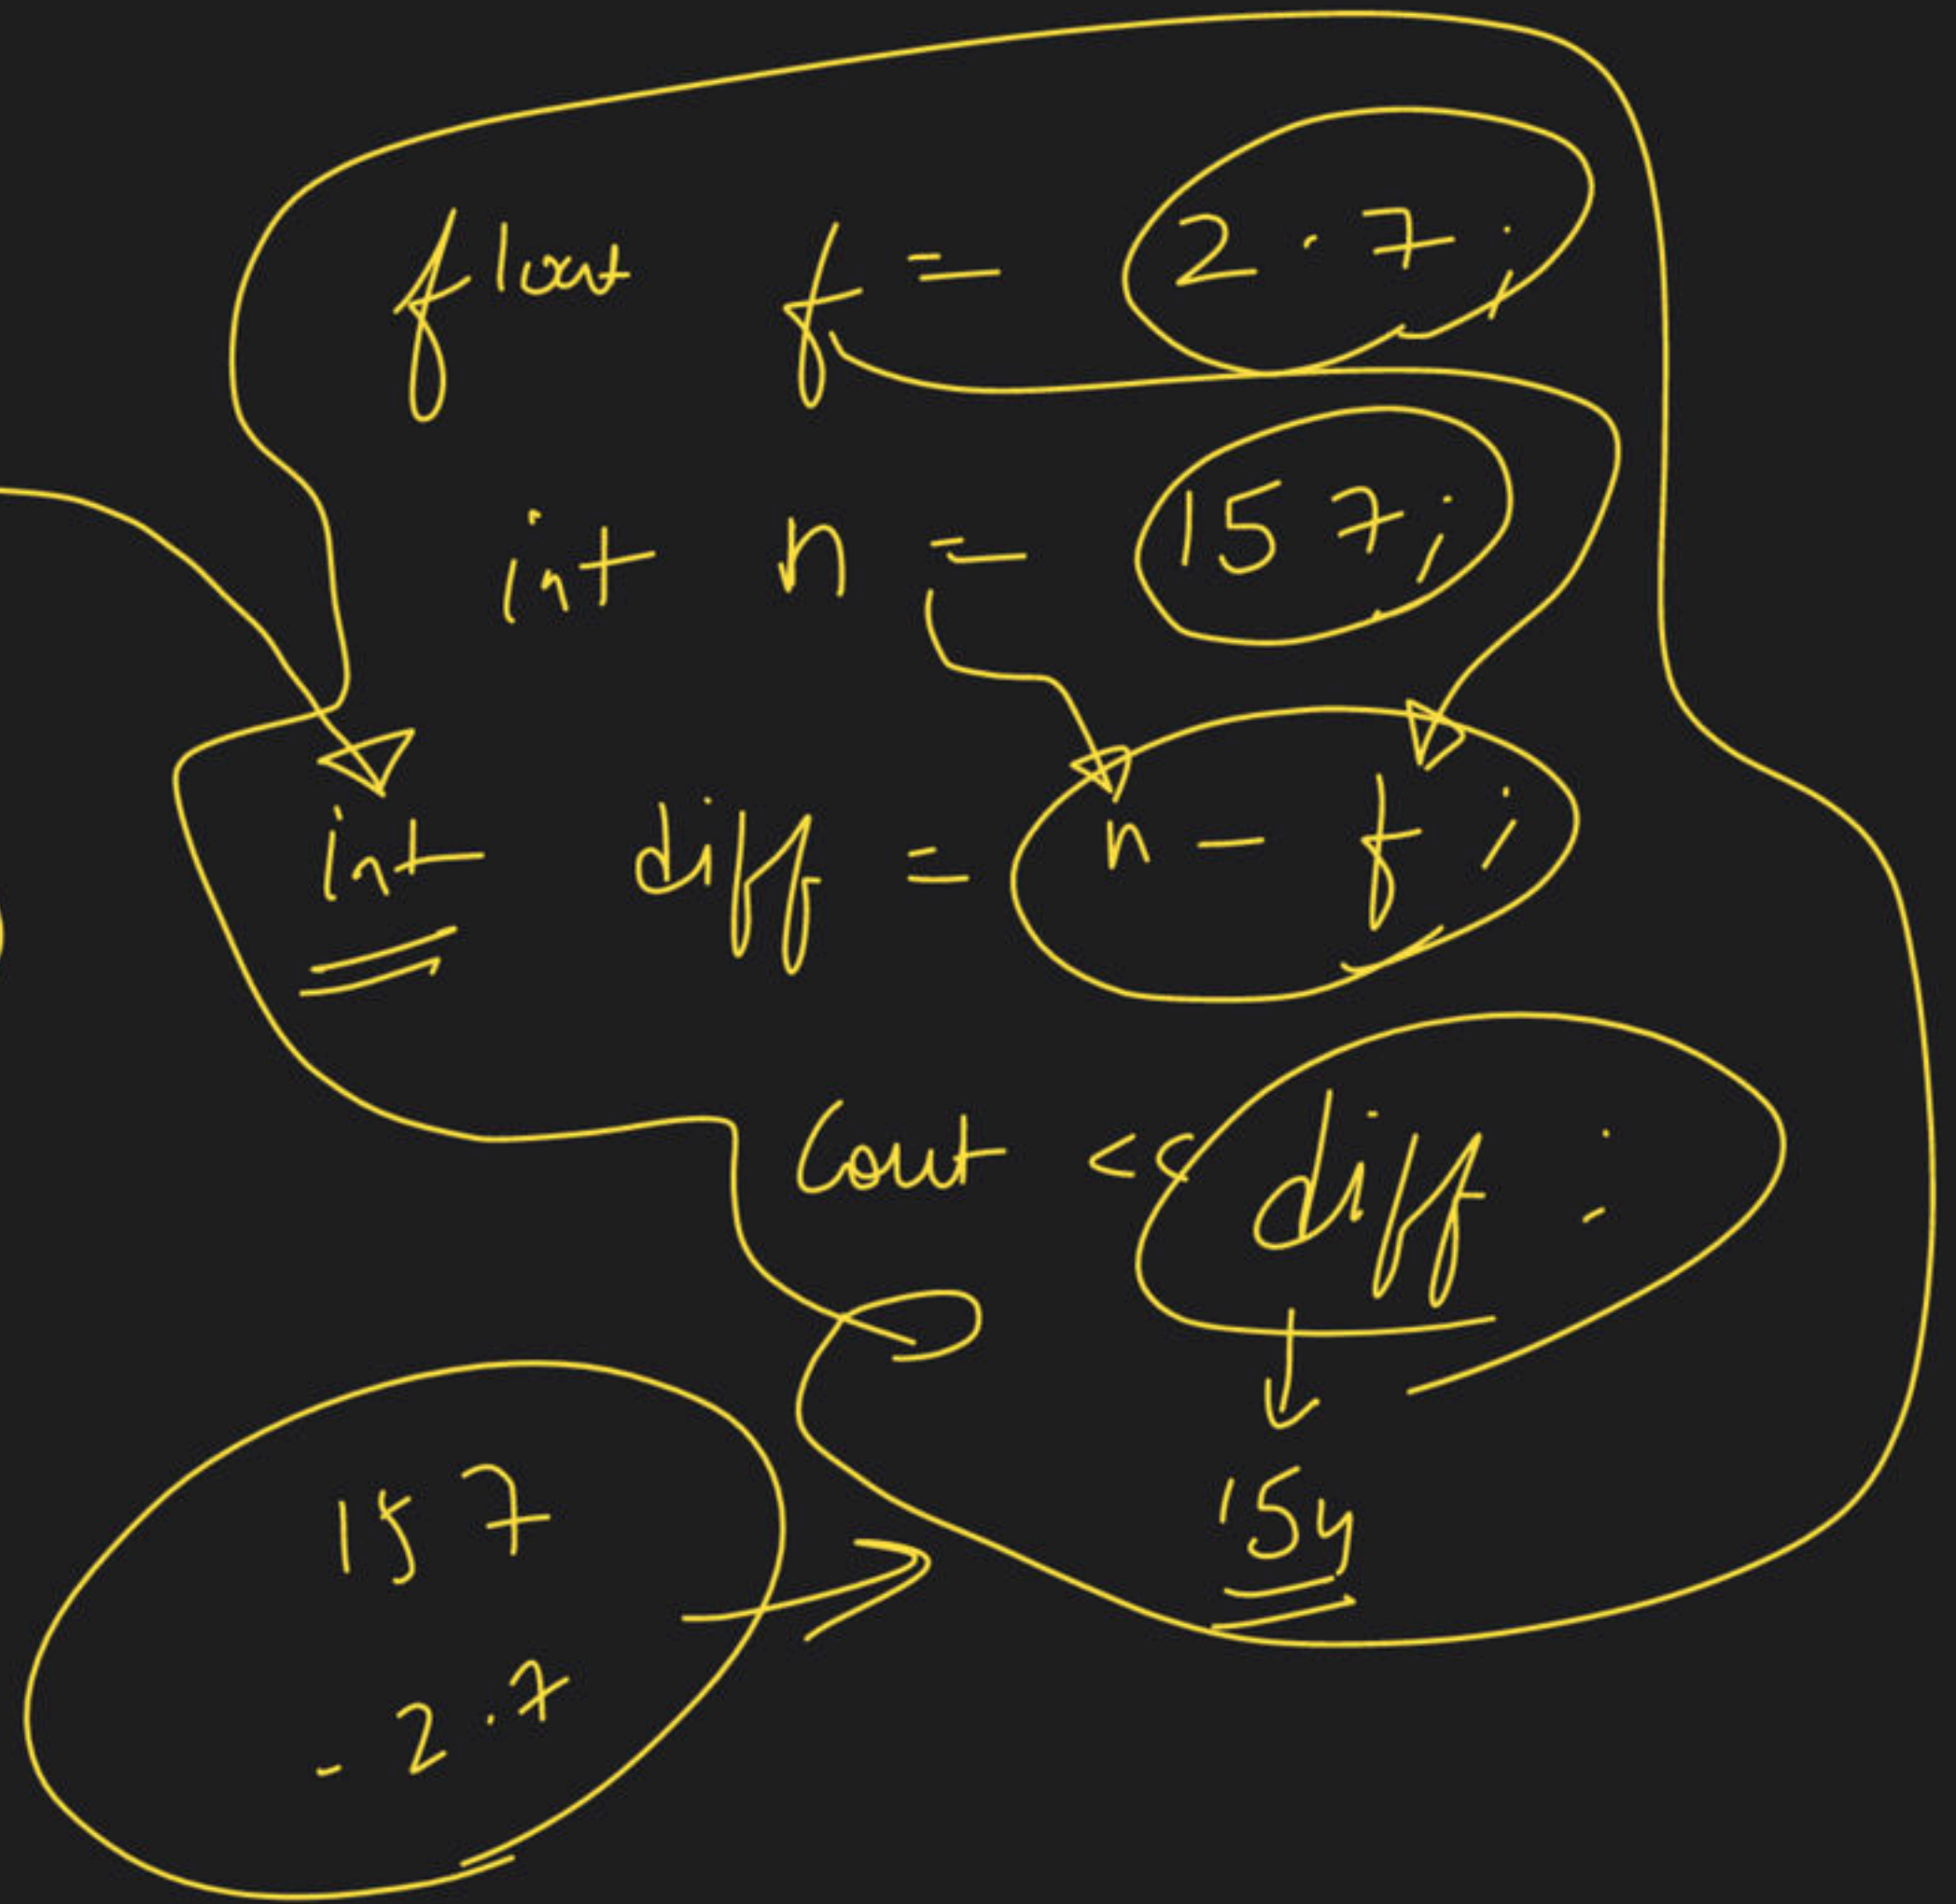 float f = 2.7;
int n = 157;
int diff = n - f;
Cout << diff;
154
157
- 2.7